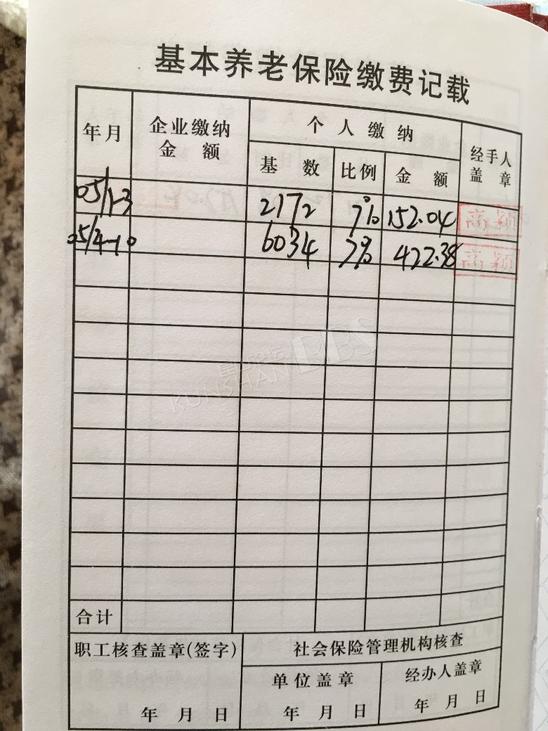 基本养老保险缴费记载
年月 企业缴纳金额 个人缴纳 经手人盖章
基数 比例 金额
05/1-3 2172 7% 152.04
05/4-10 6034 7% 422.38
KUNSHAN BBS
合计
职工核查盖章(签字) 社会保险管理机构核查
单位盖章 经办人盖章
年 月 日 年 月 日 年 月 日